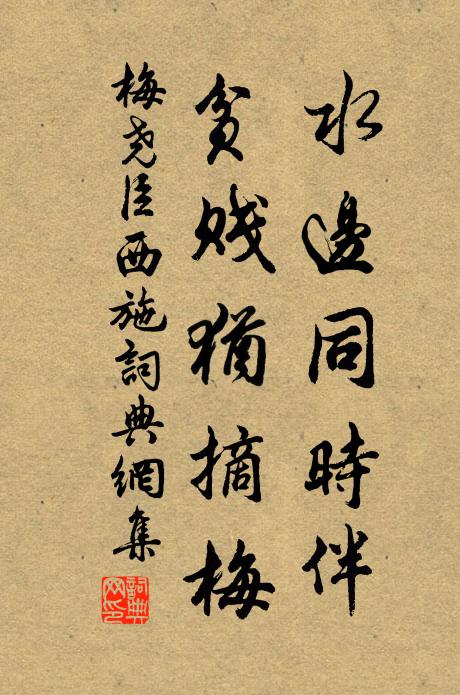 水邊同時伴
貧賤猶摘梅
梅堯臣西施詞典網集
詞典網印